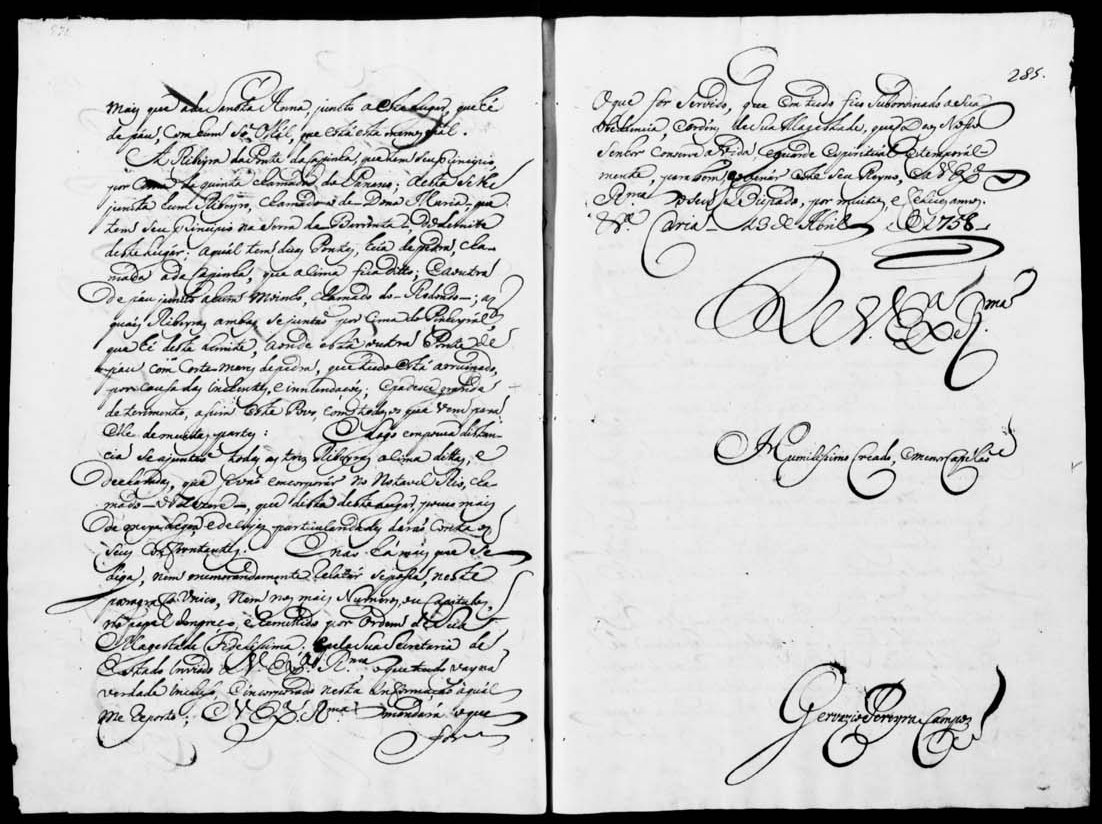 mais que a da Sancta Anna, juncto a este lugar, que hé
de páu, com hum só Olhál, que está este
A Ribeyra da Ponte da sapinta, que tem seu Principio,
por sima da quinta chamada do ; desta se lhe
juncta hum Ribeyro, chamado de Dona Maria que
tem seu Principio na serra da do Lemite
deste lugar; a quál tem duas Pontes, huã de pedra, cha-
mada a da sapinta, que asima fica ditto; e a outra
de páu juncto a hum Moinho, chamado do Redondo; as
quáis Ribeyras ambas se junctaõ por sima do
que hé deste Lemite, a onde está outra Ponte de
páu com Corta-Máres de pedra, que tudo está arruinado,
por causa das enchentes, e innundaçois; e padesse grande
deterimento, asim este Povo, com todos os que vem para
elle de muitas partes: E logo em pouca distan-
cia se ajuntaõ todas as tres Ribeyras asima dittas, e
declaradas, que se vaõ emcorporár no Notavel Rio, cha-
mado Zezere, que dista deste lugar, pouco mais
de legoa, e de cujas particularidades daraõ Conta os
seus Confrontantes. E nas há mais que se
diga, nem memorandamente Relatár se possa, neste
paragrafo Unico, nem nos mais Numeros, ou Capitulos,
no papel Impreço, e remetido por Ordem de Sua
Magestade Fidelissima, e pela sua Secretaria de
Estado inviado a V. Exª. Rma. o que tudo vay na
verdade incluzo, e incorporado nesta Informaçaõ á quál
me reporto; e V. Exª. Rma. mandará o que
for
285.
O que for Servido, que em tudo fico Subordinado a Sua
Obediencia, e Ordem de Sua Magestade, que Deos Nosso
Senhor Conserve a Vida, e guarde espiritual e temporál-
mente, para bom deste Seu Reyno, e a V. Exª.
Rma. no Seu Bispado, por muitos, e felices annos.
Caria 23 de Abril de 1758
De V. Exª. Rma.
Humilissimo Creado, e menor Capelaõ
Gervazio Pereyra Campos